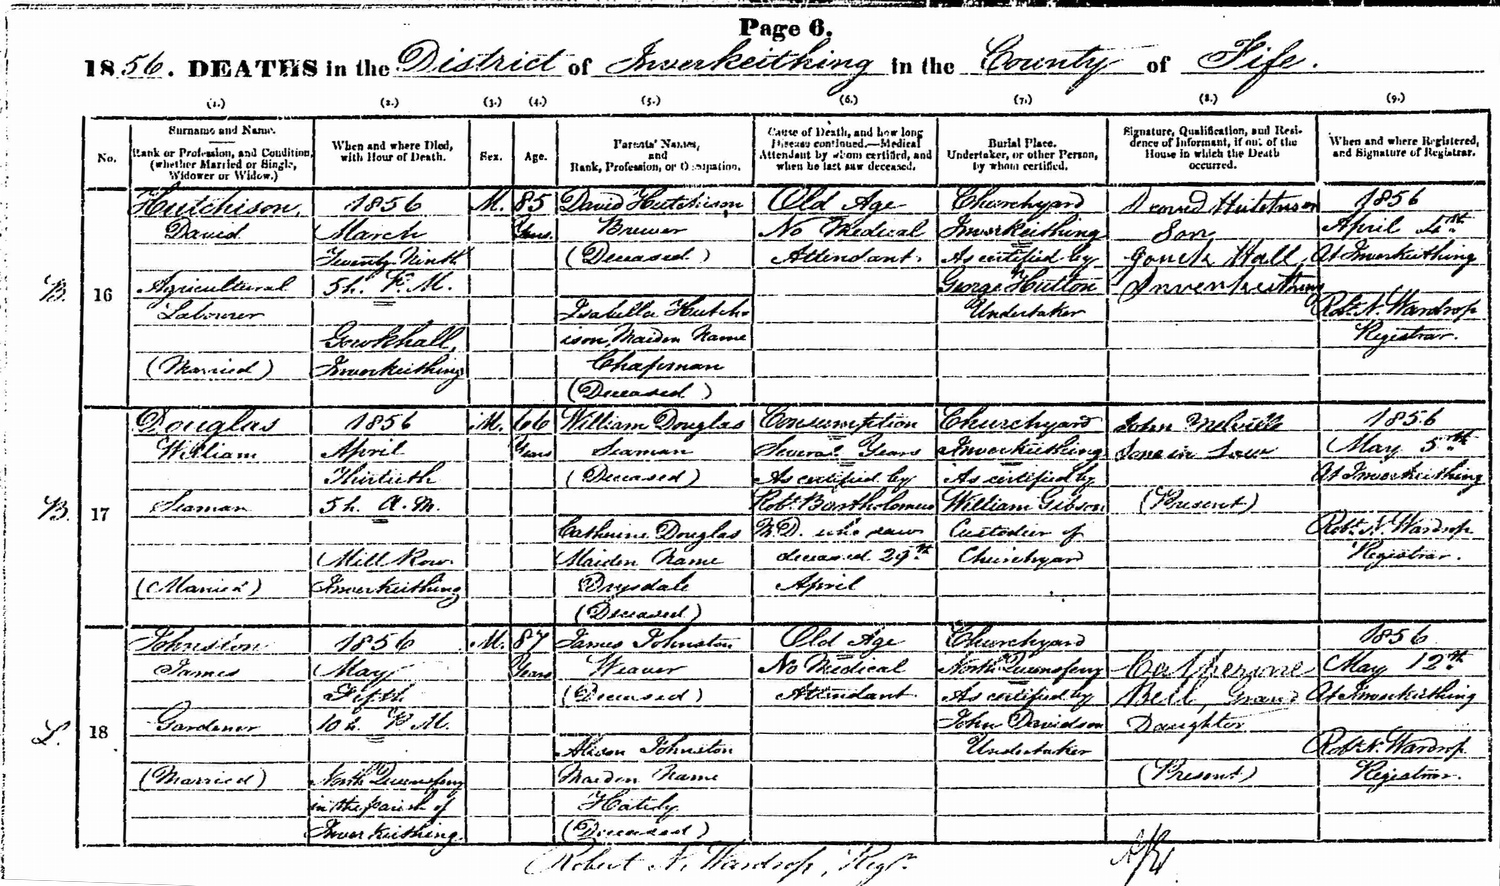 Page 6.
1856. DEATHS in the District of Inverkeithing in the County of Fife.
(1.) (2.) (3.) (4.) (5.) (6.) (7.) (8.) (9.)
No.
Surname and Name.
Rank or Profession, and Condition,
(whether Married or Single,
Widower or Widow.)
When and where Died,
with Hour of Death.
Sex.
Age.
Parents' Names,
and
Rank, Profession, or Occupation.
Cause of Death, and how long
Disease continued.—Medical
Attendant by whom certified, and
when he last saw deceased.
Burial Place.
Undertaker, or other Person,
by whom certified.
Signature, Qualification, and Resi-
dence of Informant, if out of the
House in which the Death
occurred.
When and where Registered,
and Signature of Registrar.
B.
16
Hutchison,
David
Agricultural
Labourer
(Married)
1856
March
Twenty Ninth
5h. P.M.
Gowkhall,
Inverkeithing
M.
85
Years.
David Hutchison
Brewer
(Deceased)
Isabella Hutch
ison, Maiden Name
Chapman
(Deceased)
Old Age
No Medical
Attendant.
Churchyard
Inverkeithing
As certified by
George Hutton
Undertaker
David Hutchison
Son
Gouck Hall
Inverkeithing
1856
April 4th
At Inverkeithing
Robt. N. Wardrop
Registrar.
B.
17
Douglas
William
Seaman
(Married)
1856
April
Thirtieth
5h. A.M.
Mill Row
Inverkeithing
M.
66
Years
William Douglas
Seaman
(Deceased)
Catherine Douglas
Maiden Name
Drysdale
(Deceased)
Consumption
Several Years
As certified by
Robt. Bartholomew
M.D. who saw
deceased 29th
April
Churchyard
Inverkeithing
As certified by
William Gibson
Custodier of
Churchyard
John Melville
Sone in Law
(Present)
1856
May 5th
At Inverkeithing
Robt. N. Wardrop
Registrar.
L.
18
Johnston
James
Gardener
(Married)
1856
May
Fifth
10h. P.M.
North Queensferry
in the parish of
Inverkeithing.
M.
87
Years
James Johnston
Weaver
(Deceased)
Alison Johnston
Maiden Name
Hately
(Deceased)
Old Age
No Medical
Attendant
Churchyard
North Queensferry
As certified by
John Davidson
Undertaker
Catherine
Bell, Grand
Daughter
(Present)
1856
May 12th
At Inverkeithing
Robt. N. Wardrop
Registrar.
Robert N. Wardrop, Regr.